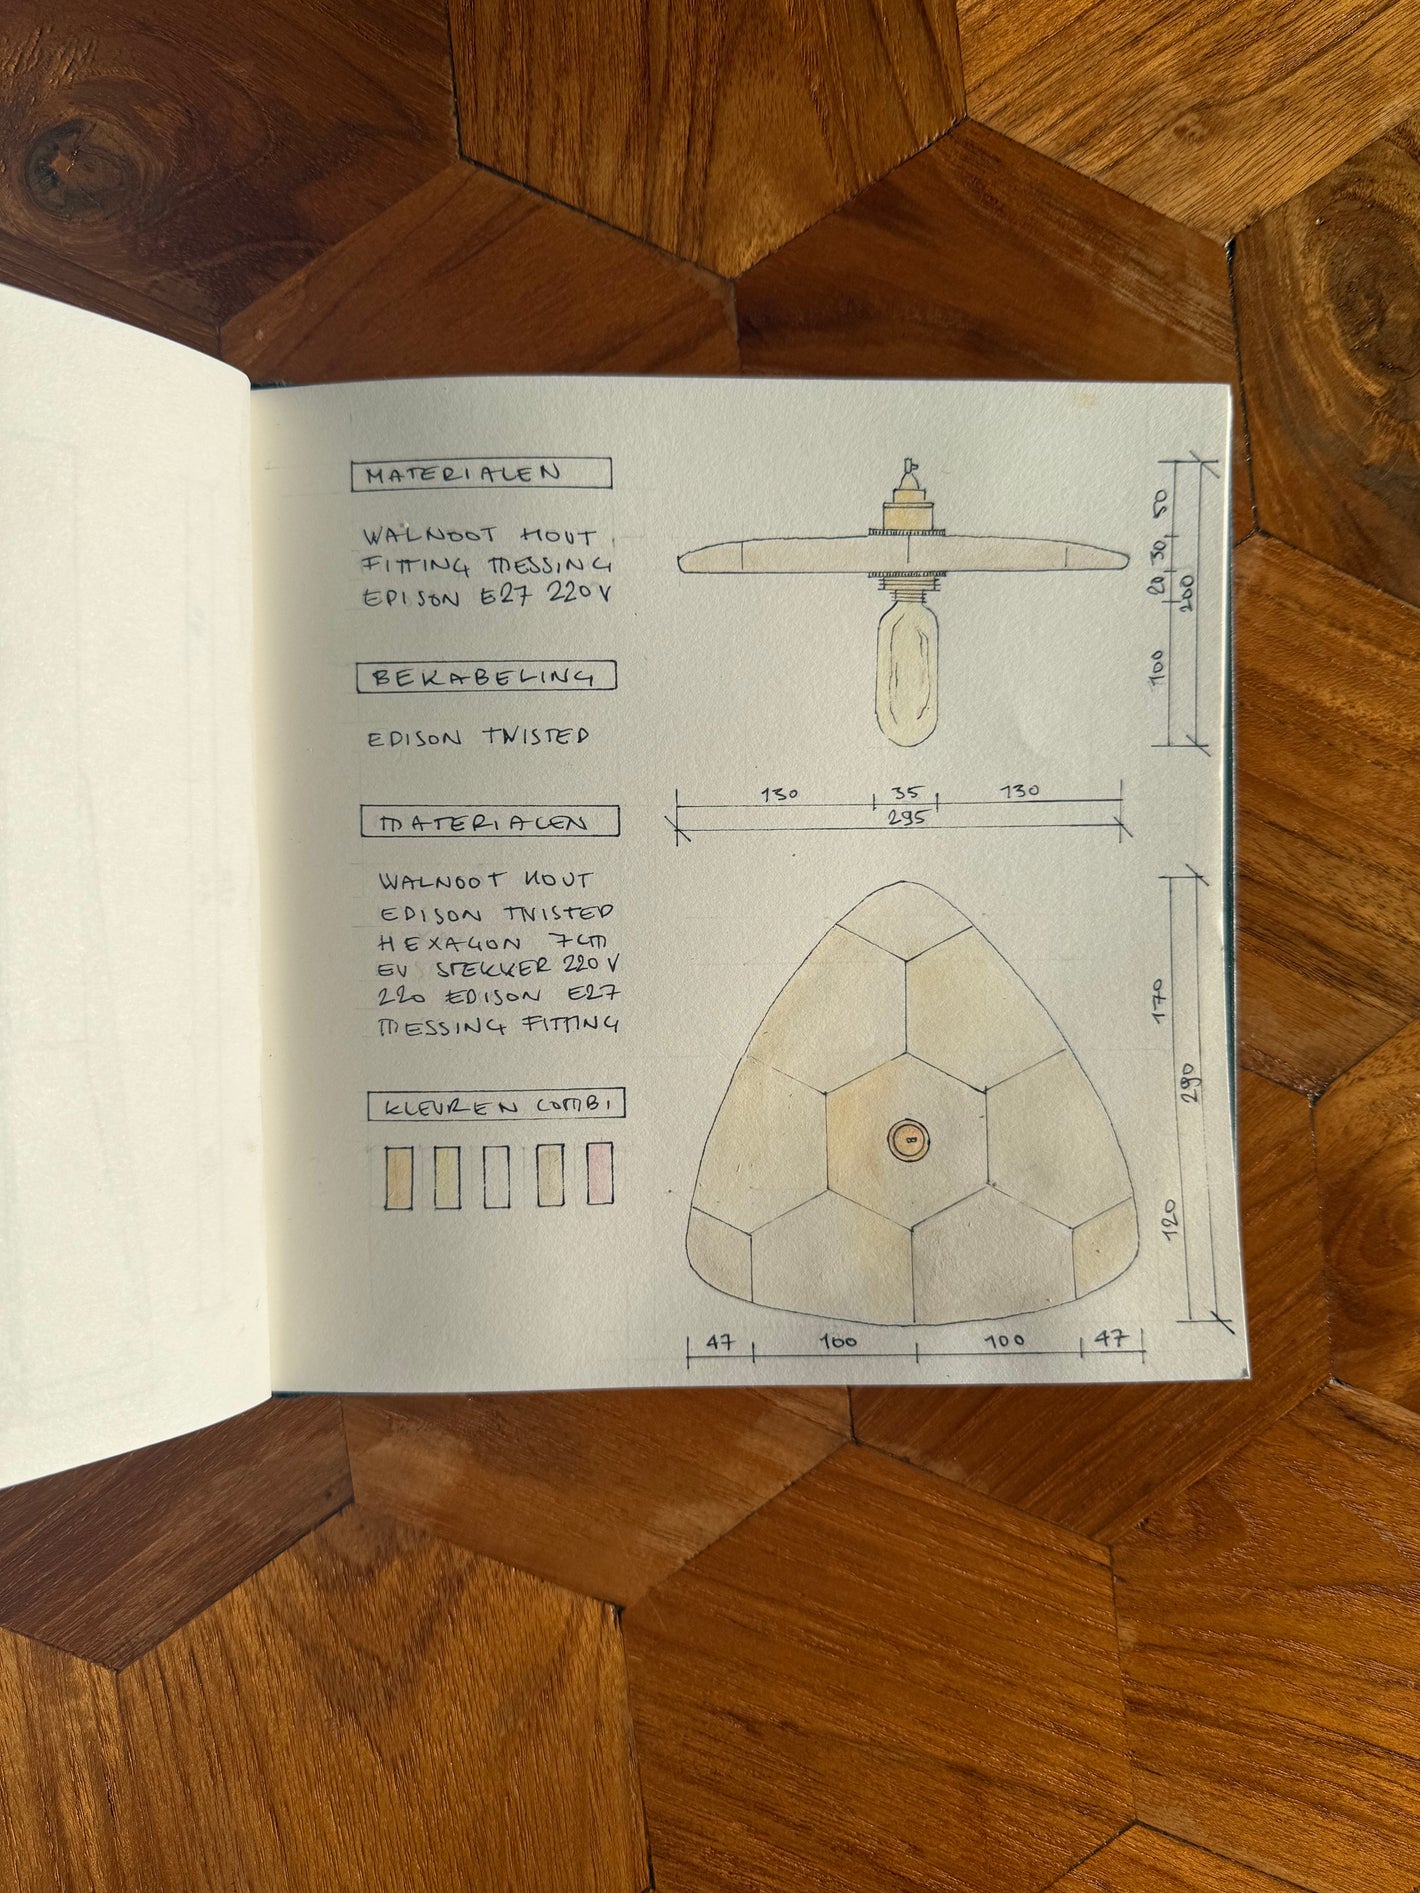 MATERIALEN
WALNOOT HOUT
FITTING MESSING
EDISON E27 220V
BEKABELING
EDISON TWISTED
MATERIALEN
WALNOOT HOUT
EDISON TWISTED
HEXAGON 7CM
EU STEKKER 220V
220 EDISON E27
MESSING FITTING
KLEUREN COMBI
50
30
20
200
100
130 35 130
295
170
290
120
47 100 100 47